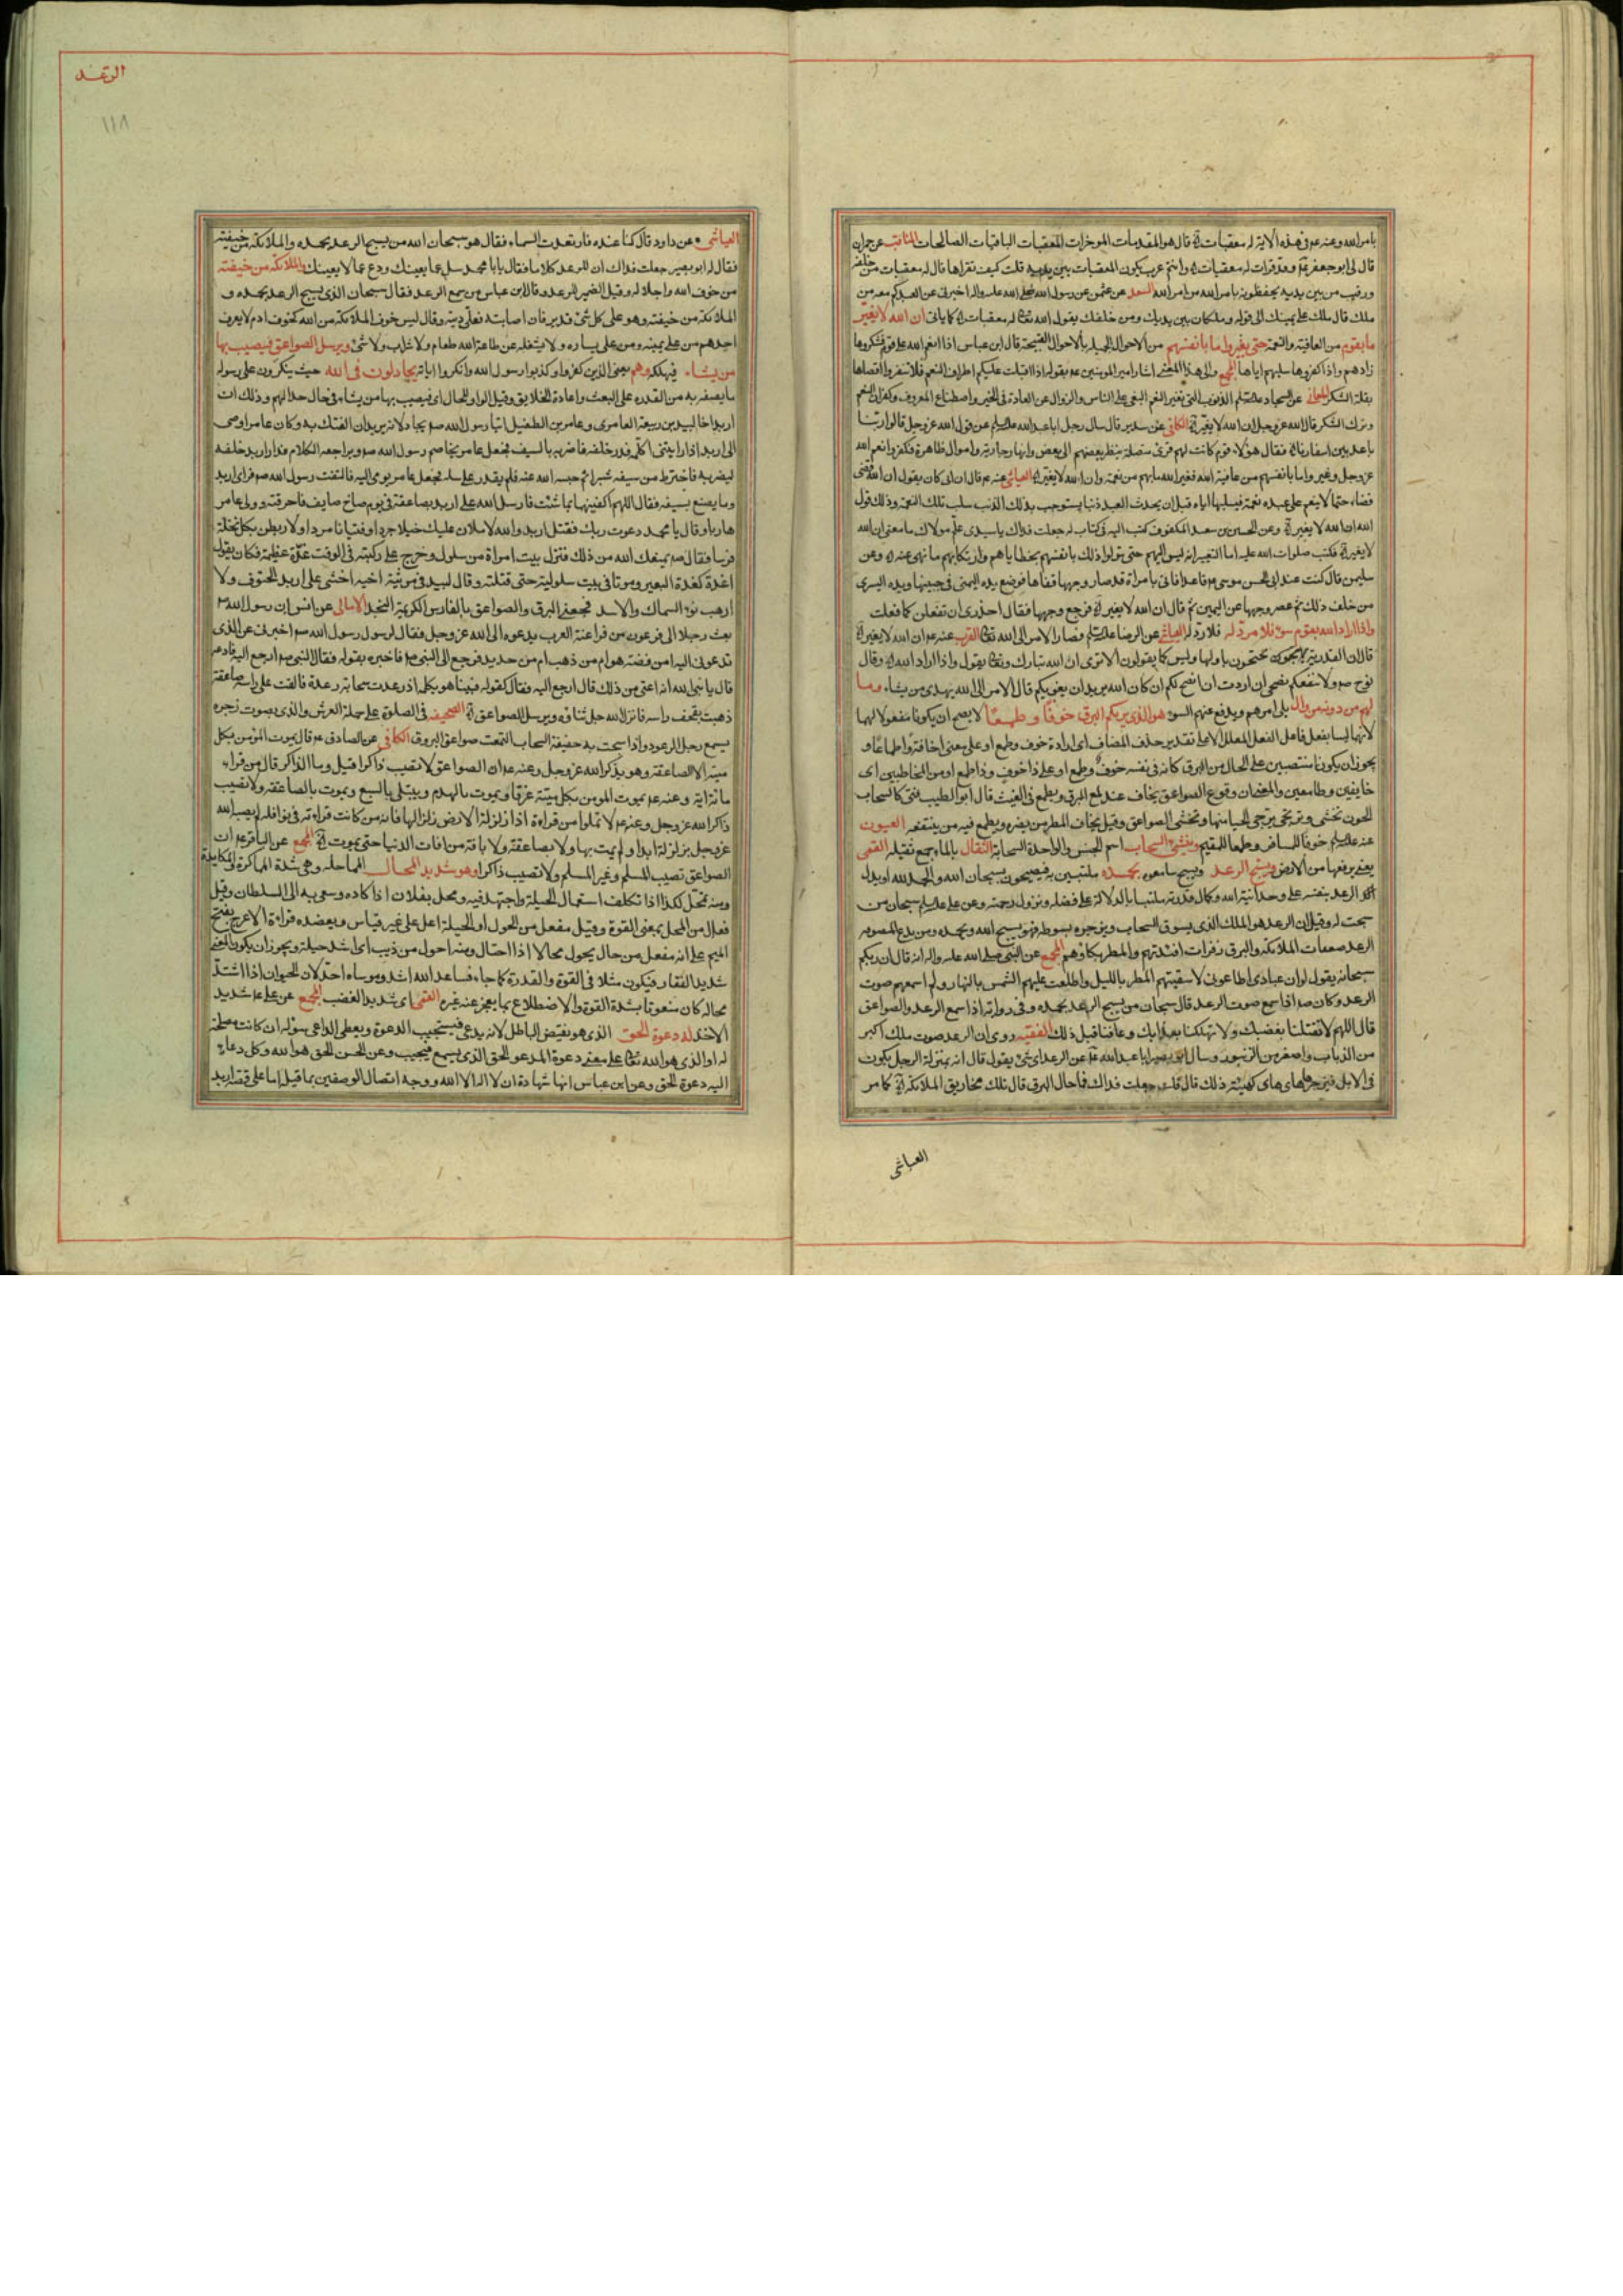 بامر الله وعنه عم فى هذه الاية له معقبات الآية قال هو المقدمات الموخرات المعقبات الباقيات الصالحات المناقب عن حمران
قال لى ابو جعفر عم وقد قرات له معقبات وانتم عرب يكون المعقبات بين يديه قلت كيف نقراها قال له معقبات من خلفه
ورقيب من بين يديه يحفظونه بامر الله من امر الله السعد عن عثمن عن رسول الله صلى الله عليه واله اخبرنى عن العبد كم معه من
ملك قال ملك على يمينك الى قوله وملكان بين يديك ومن خلفك يقول الله تعالى له معقبات كما ياتى ان الله لا يغير
ما بقوم من العافية والنعمة حتى يغيروا ما بانفسهم من الاحوال الجميلة بالاحوال القبيحة قال ابن عباس اذا انعم الله على قوم فشكروها
زادهم واذا كفروها سلبهم اياها المجمع والى هذا المعنى اشار امير المومنين عم بقوله اذا اقبلت عليكم اطراف النعم فلا تنفروا اقصاها
بقلة الشكر المعانى عن السجاد عليه السلم الذنوب التى تغير النعم البغى على الناس والزوال عن العادة فى الخير واصطناع المعروف وكفران النعم
وترك الشكر قال الله عز وجل ان الله لا يغير الآية الكافى عن سدير قال سال رجل ابا عبد الله عليه السلم عن قول الله عز وجل قالوا ربنا
باعد بين اسفارنا الآية فقال هؤلاء قوم كانت لهم قرى متصلة ينظر بعضهم الى بعض وانهار جارية واموال ظاهرة فكفروا نعم الله
عز وجل وغيروا ما بانفسهم من عافية الله فغير الله ما بهم من نعمة وان الله لا يغير الآية العياشى عنه عم قال ان ابى كان يقول ان الله قضى
قضاء حتما لا ينعم على عبده نعمة فيسلبها اياه قبل ان يحدث العبد ذنبا يستوجب بذلك الذنب سلب تلك النعمة وذلك قول
الله ان الله لا يغير الآية وعن الحسين بن سعد المكفوف كتب اليه فى كتاب له جعلت فداك يا سيدى علم مولاك ما معنى ان الله
لا يغير الآية فكتب صلوات الله عليه اما التغيير انه ليس اليهم حتى يتولوا ذلك بانفسهم بخطاياهم وارتكابهم ما نهى عنه وعن
سليمن قال كنت عند ابى الحسن موسى عم قاعدا فاتى بامراة قد صار وجهها قفاها فوضع يده اليمنى فى جبينها ويده اليسرى
من خلف ذلك ثم عصر وجهها عن اليمين ثم قال ان الله لا يغير الآية فرجع وجهها فقال احذرى ان تفعلن كما فعلت
واذا اراد الله بقوم سوء فلا مرد له فلا رد له العياشى عن الرضا عليه السلم فصار الامر الى الله تعالى القرب عنه عم ان الله لا يغير الآية
قال ان القدرية يحتجون باولها وليس كما يقولون الا ترى ان الله تبارك وتعالى يقول واذا اراد الله وقال
نوح صم ولا ينفعكم نصحى ان اردت ان انصح لكم ان كان الله يريد ان يغويكم قال الامر الى الله يهدى من يشاء وما
لهم من دونه من وال يلى امرهم ويدفع عنهم السوء هو الذى يريكم البرق خوفا وطمعا لا يصح ان يكونا مفعولا لهما
لانهما ليسا بفعل فاعل الفعل المعلل الا على تقدير حذف المضاف اى ارادة خوف وطمع او على معنى اخافة واطماعا و
يجوز ان يكونا منتصبين على الحال من البرق كانه فى نفسه خوف وطمع او على ذا خوف وذا طمع او من المخاطبين اى
خايفين وطامعين والمعنى ان وقوع الصواعق يخاف عند لمع البرق ويطمع فى الغيث قال ابو الطيب فتى كالسحاب
الجون تخشى وترتجى يرجى الحيا منها وتخشى الصواعق وقيل يخاف المطر من يضره ويطمع فيه من ينتفعه العيون
عنه عليه السلم خوفا للمسافر وطمعا للمقيم وينشئ السحاب اسم الجنس والواحدة السحابة الثقال بالماء جمع ثقيلة القمى
يعنى يرفعها من الارض ويسبح الرعد ويسبح سامعوه بحمده ملتبسين به فيصيحون بسبحان الله والحمد لله او يدل
الرعد بنفسه على وحدانية الله وكمال قدرته ملتبسا بالدلالة على فضله ونزول رحمته وعن على عليه السلم سبحان من
سبحت له وقيل ان الرعد هو الملك الذى يسوق السحاب ويزجره بسوطه فهو يسبح الله ويحمده ومن بدع المتصوفة
الرعد صعقات الملائكة والبرق زفرات افئدتهم والمطر بكاؤهم المجمع عن النبى صلى الله عليه واله انه قال ان ربكم
سبحانه يقول لو ان عبادى اطاعونى لاسقيتهم المطر بالليل واطلعت عليهم الشمس بالنهار ولم اسمعهم صوت
الرعد وكان صم اذا سمع صوت الرعد قال سبحان من يسبح الرعد بحمده وفى رواية اذا سمع الرعد والصواعق
قال اللهم لا تقتلنا بغضبك ولا تهلكنا بعذابك وعافنا قبل ذلك الفقيه روى ان الرعد صوت ملك اكبر
من الذباب واصغر من الزنبور وسال ابو بصير ابا عبد الله عم عن الرعد اى شئ يقول قال انه بمنزلة الرجل يكون
فى الابل فيزجرها هاى هاى كهيئة ذلك قال قلت جعلت فداك فما حال البرق قال تلك مخاريق الملائكة الآية كما مر
العياشى
الرعد
١١٨
العياشى عن داود قال كنا عنده فارتعدت السماء فقال هو سبحان الله من يسبح الرعد بحمده والملائكة من خيفته
فقال له ابو بصير جعلت فداك ان للرعد كلاما فقال يا با محمد سل عما يعنيك ودع عما لا يعنيك والملائكة من خيفته
من خوف الله واجلاله وقيل الضمير للرعد وقال ابن عباس من سمع الرعد فقال سبحان الذى يسبح الرعد بحمده و
الملائكة من خيفته وهو على كل شئ قدير فان اصابته فعلى ديته وقال ليس خوف الملائكة من الله كخوف ادم لا يعرف
احدهم من على يمينه ومن على يساره ولا يشغله عن طاعة الله طعام ولا شراب ولا شئ ويرسل الصواعق فيصيب بها
من يشاء فيهلكه وهم يعنى الذين كفروا وكذبوا رسول الله وانكروا اياته يجادلون فى الله حيث ينكرون على رسوله
ما يصفه به من القدرة على البعث واعادة الخلايق وقيل الواو للحال اى فيصيب بها من يشاء فى حال جدالهم وذلك ان
اربد اخا لبيد بن ربيعة العامرى وعامر بن الطفيل اتيا رسول الله صم يجادلانه يريدان الفتك به وكان عامر اوصى
الى اربد اذا رايتنى اكلمه فدر خلفه فاضربه بالسيف فجعل عامر يخاصم رسول الله صم ويراجعه الكلام فدار اربد خلفه
ليضربه فاخترط من سيفه شبرا ثم حبسه الله عنه فلم يقدر على سله فجعل عامر يومى اليه فالتفت رسول الله صم فراى اربد
وما يصنع بسيفه فقال اللهم اكفنيهما بما شئت فارسل الله على اربد صاعقة فى يوم صاح صايف فاحرقته وولى عامر
هاربا وقال يا محمد دعوت ربك فقتل اربد والله لاملان عليك خيلا جردا وفتيانا مردا ولاربطن بكل نخلة
فرسا فقال صم يمنعك الله من ذلك فنزل بيت امراة من سلول وخرج على ركبته فى الوقت غدة عظيمة فكان يقول
اغدة كغدة البعير وموتا فى بيت سلولية حتى قتلته وقال لبيد فى مرثية اخيه اخشى على اربد الحتوف ولا
ارهب نوء السماك والاسد فجعنى البرق والصواعق بالفارس الكريهة النجد الامالى عن انس ان رسول الله صم
بعث رجلا الى فرعون من فراعنة العرب يدعوه الى الله عز وجل فقال لرسول رسول الله صم اخبرنى عن الذى
تدعونى اليه امن فضة هو ام من ذهب ام من حديد فرجع الى النبى صم فاخبره بقوله فقال النبى صم ارجع اليه فادعه
قال يا نبى الله انه اعتى من ذلك قال ارجع اليه فقال كقوله فبينا هو يكلمه اذ رعدت سحابة رعدة فالقت على راسه صاعقة
ذهبت بقحف راسه فانزل الله جل ثناؤه ويرسل الصواعق الآية الصحيفة فى الصلوة على حملة العرش والذى بصوت زجره
يسمع زجل الرعود واذا سبحت به حفيفة السحاب التمعت صواعق البروق الكافى عن الصادق عم قال يموت المؤمن بكل
ميتة الا الصاعقة وهو يذكر الله عز وجل وعنه عم ان الصواعق لا تصيب ذاكرا قيل وما الذاكر قال من قراء
ماتة اية وعنه عم يموت المومن بكل ميتة غرقا ويموت بالهدم ويبتلى بالسبع ويموت بالصاعقة ولا تصيب
ذاكر الله عز وجل وعنه عم لا تملوا من قراءة اذا زلزلة الارض زلزالها فانه من كانت قراءته فى نوافله لم يصبه الله
عز وجل بزلزلة ابدا ولم يمت بها ولا بصاعقة ولا بافة من افات الدنيا حتى يموت الآية المجمع عن الباقر عم ان
الصواعق تصيب المسلم وغير المسلم ولا تصيب ذاكرا وهو شديد المحال المماحلة وهى شدة المماكرة والمكايدة
ومنه تمحل لكذا اذا تكلف استعمال الحيلة واجتهد فيه ومحل بفلان اذا كاده وسعى به الى السلطان وقيل
فعال من المحل بمعنى القوة وقيل مفعل من الحول او الحيلة اعل على غير قياس ويعضده قراءة الاعرج بفتح
الميم على انه مفعل من حال يحول محالا اذا احتال ومنه احول من ذيب اى اشد حيلة ويجوز ان يكون المعنى
شديد الفقار فيكون مثلا فى القوة والقدرة كما جاء فساعد الله اشد وموساه احد لان الحيوان اذا اشتد
محاله كان منعوتا بشدة القوة والاضطلاع بما يعجز عنه غيره القمى اى شديد الغضب المجمع عن على عم شديد
الاخذ له دعوة الحق الذى هو نقيض الباطل لانه يدعى فيستجيب الدعوة ويعطى الداعى سؤله ان كانت مصلحة
له او الذى هو الله تعالى على معنى دعوة المدعو الحق الذى يسمع فيجيب وعن الحسن الحق هو الله وكل دعاء
اليه دعوة الحق وعن ابن عباس انها شهادة ان لا اله الا الله ووجه اتصال الوصفين بما قبل اما على قصة اربد